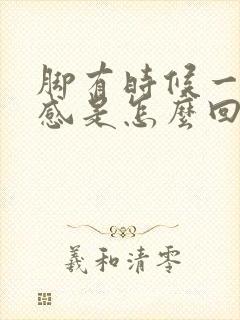 脚有時候一
感是怎麼回
羲和清零